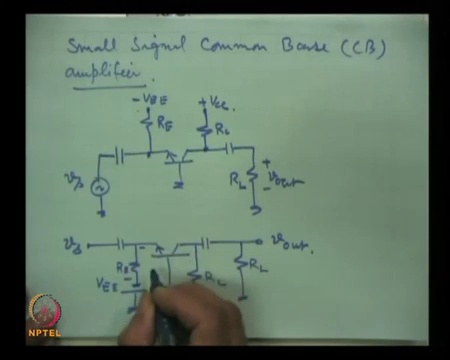 Small Signal Common Base (CB)
amplifier.
-VEE +VCC
RE RL
vs RL + vout -
vs vout.
RE RL RL
VEE
NPTEL